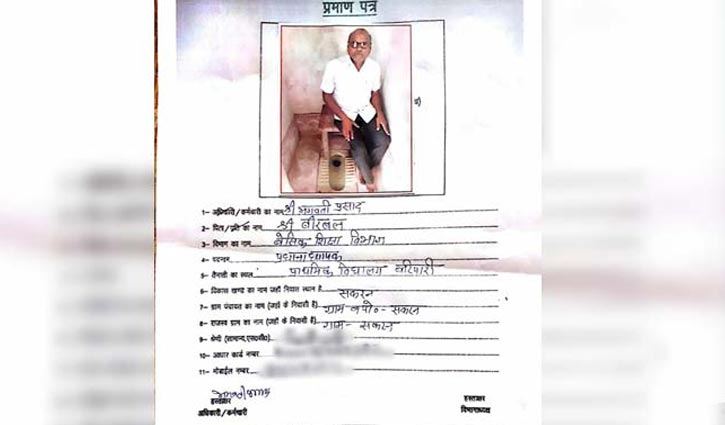 प्रमाण पत्र
1- अधिकारी/कर्मचारी का नाम श्री भगवती प्रसाद
2- पिता/पति का नाम श्री बीरबल
3- विभाग का नाम बेसिक शिक्षा विभाग
4- पदनाम प्रधानाध्यापक
5- तैनाती का स्थल प्राथमिक विद्यालय
6- विकास खण्ड का नाम जहाँ निवास स्थान है सकरन
7- ग्राम पंचायत का नाम (जहाँ के निवासी है) ग्राम व पो०- सकरन
8- राजस्व ग्राम का नाम (जहाँ के निवासी है) ग्राम- सकरन
9- श्रेणी
10- आधार कार्ड नम्बर
11- मोबाईल नम्बर
हस्ताक्षर हस्ताक्षर
अधिकारी/कर्मचारी विभागाध्यक्ष